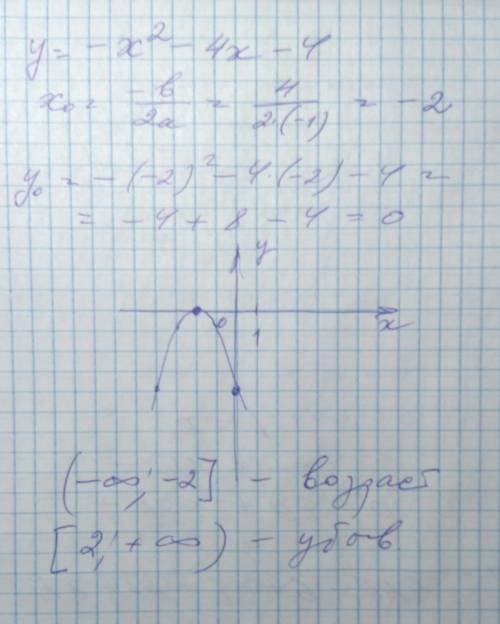 y = -x² - 4x - 4
x₀ = -b/2a = 4/2·(-1) = -2
y₀ = -(-2)² - 4·(-2) - 4 =
= -4 + 8 - 4 = 0
y
0 x
1
(-∞; -2] - возраст
[2; +∞) - убыв